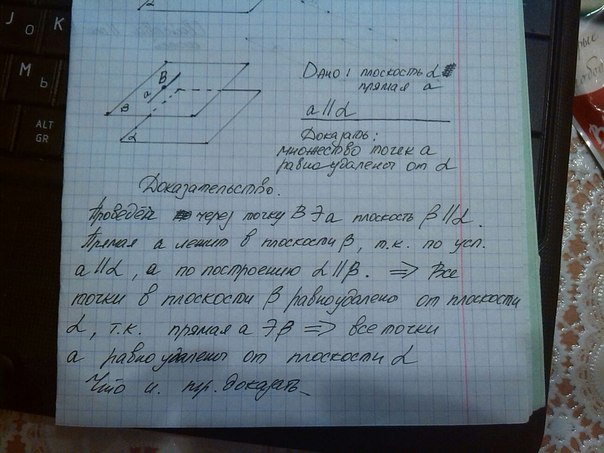 J
O
K
М
Ь
ALT
GR
α
B
a
B
α
Дано: плоскость α
прямая a
a || α
Доказать:
множество точек a
равноудалены от α
Доказательство.
Проведём через точку B ∋ a плоскость β || α.
Прямая a лежит в плоскости β, т.к. по усл.
a || α, а по построению α || β. => Все
точки в плоскости β равноудалено от плоскости
α, т.к. прямая a ∋ β => все точки
a равноудалены от плоскости α
Что и. тр. доказать